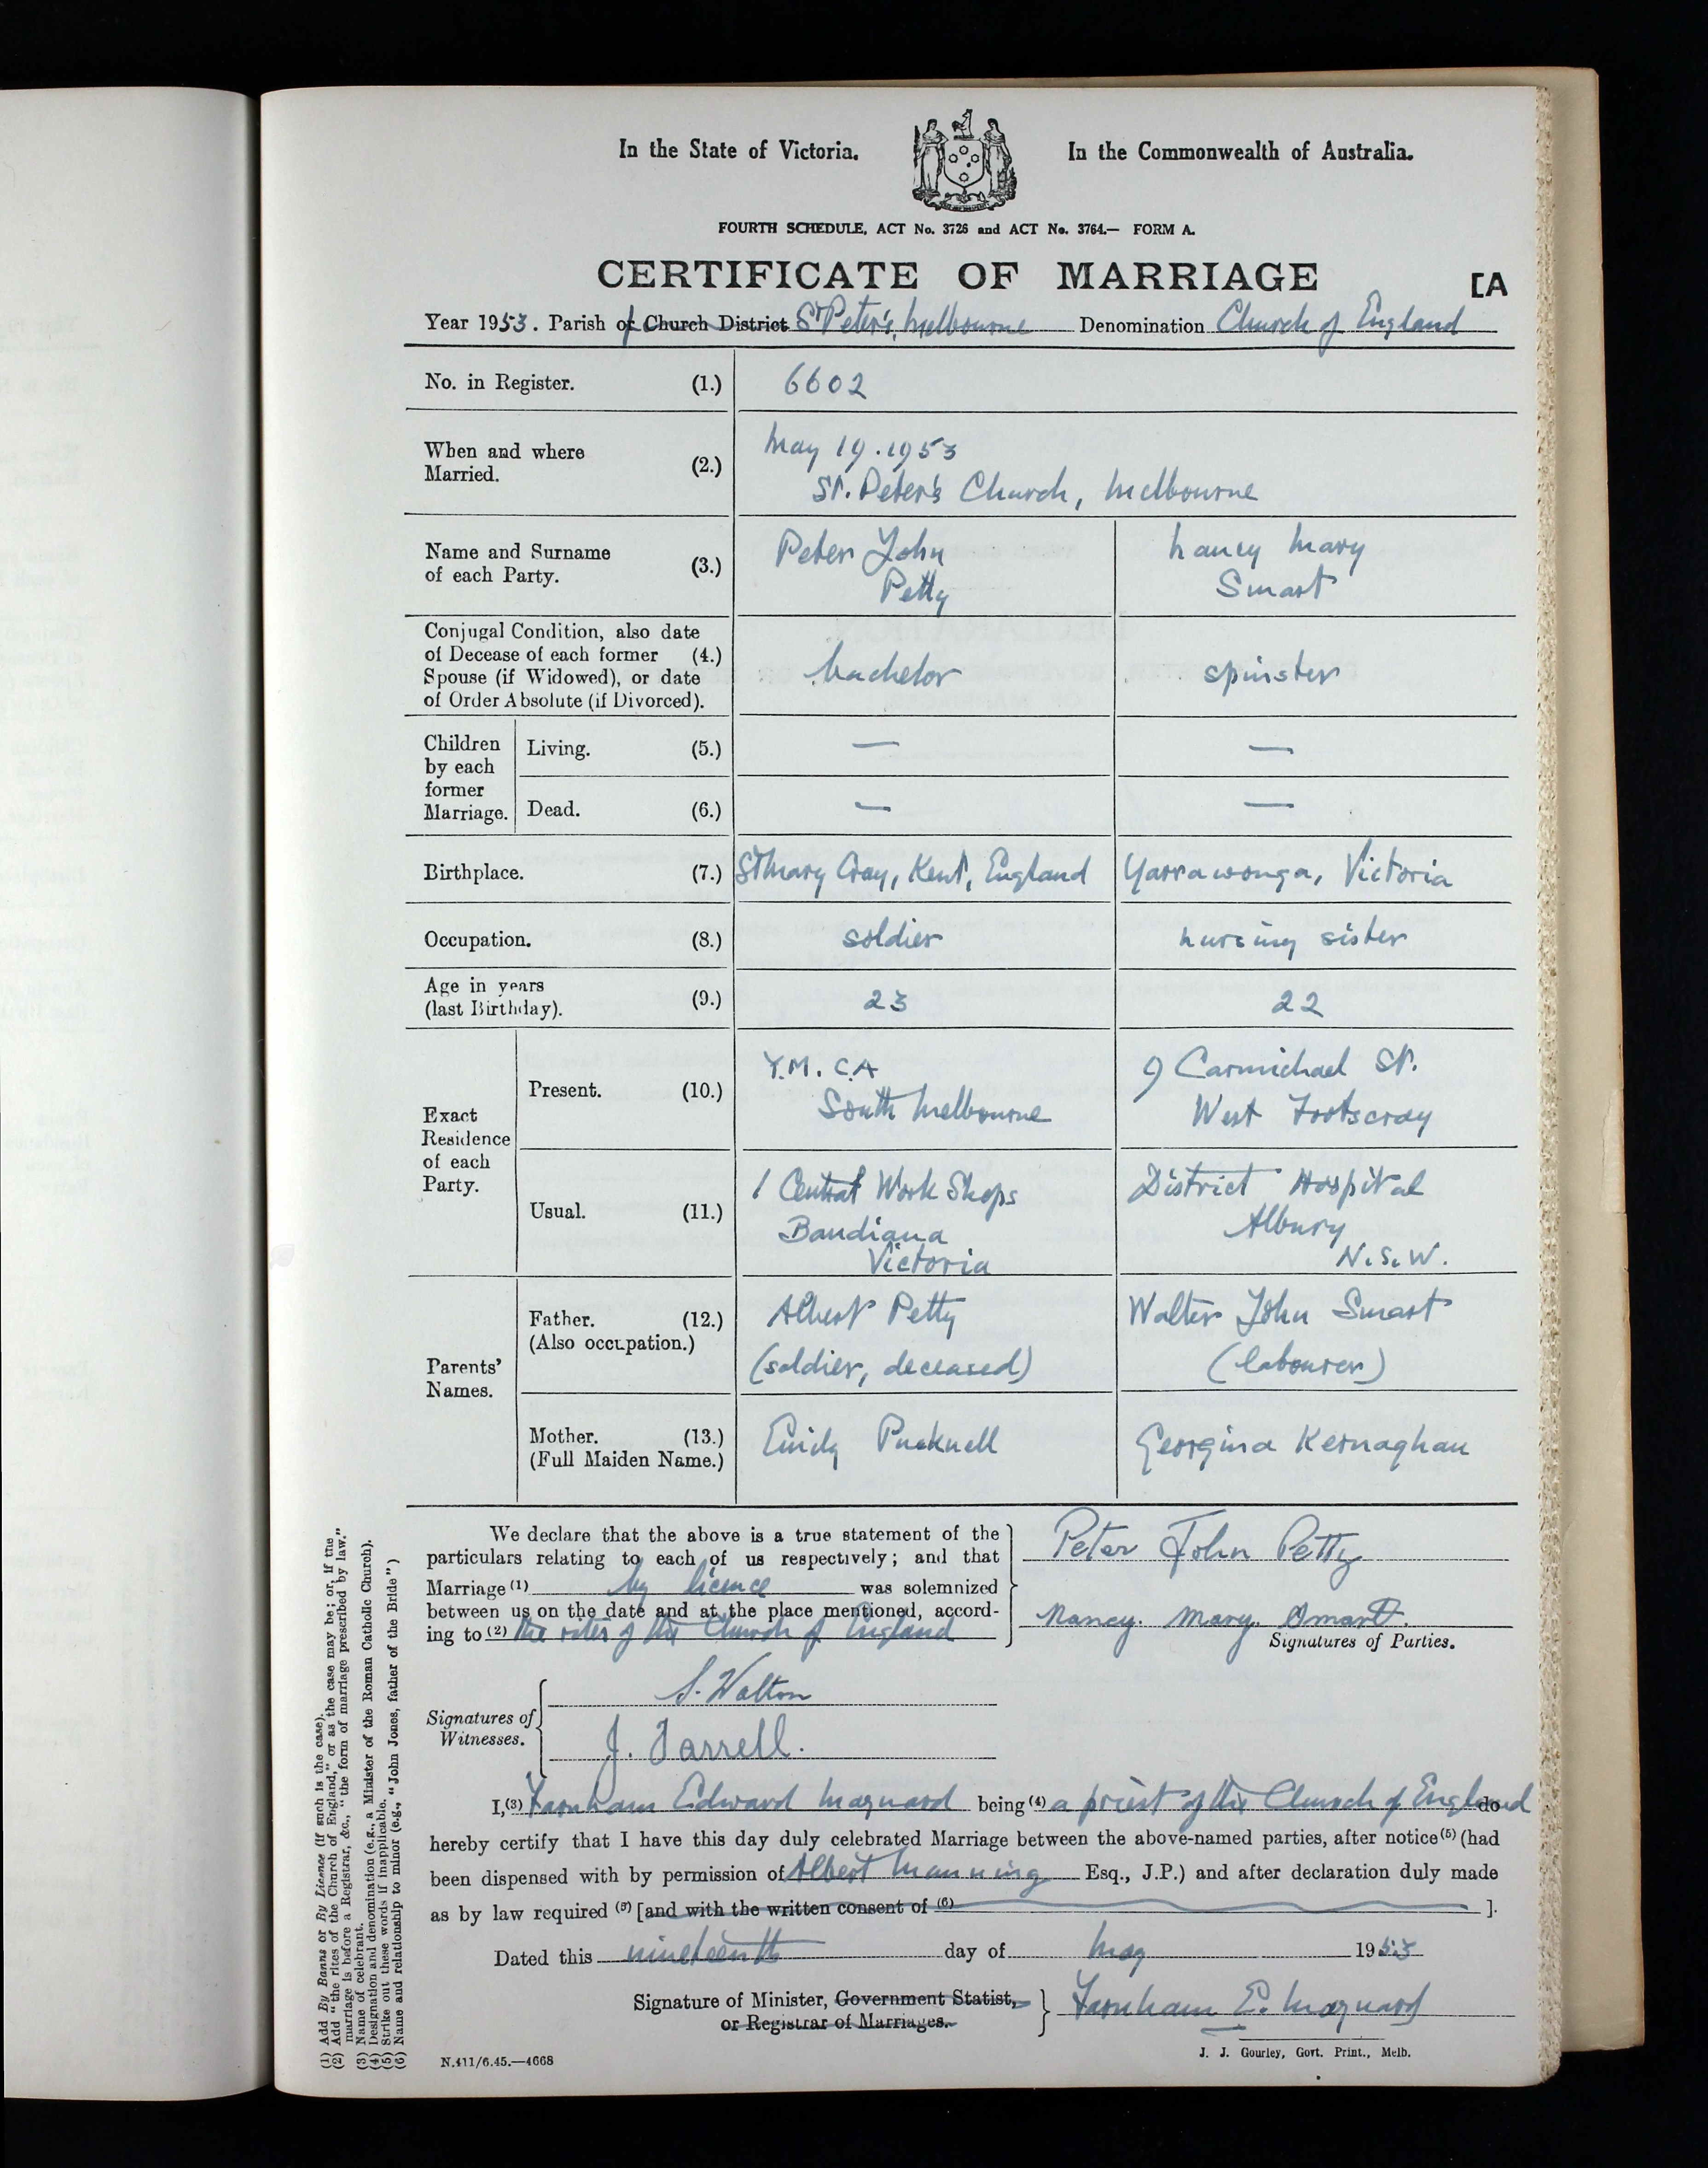 In the State of Victoria. In the Commonwealth of Australia.
FOURTH SCHEDULE, ACT No. 3726 and ACT No. 3764.— FORM A.
CERTIFICATE OF MARRIAGE [A
Year 1953. Parish of Church District St Peter's, Melbourne Denomination Church of England
No. in Register. (1.) 6602
When and where Married. (2.) May 19. 1953
St. Peter's Church, Melbourne
Name and Surname of each Party. (3.) Peter John Nancy Mary
Petty Smart
Conjugal Condition, also date
of Decease of each former (4.)
Spouse (if Widowed), or date
of Order Absolute (if Divorced).
bachelor spinster
Children by each former Marriage.
Living. (5.) — —
Dead. (6.) — —
Birthplace. (7.) St Mary Cray, Kent, England Yarrawonga, Victoria
Occupation. (8.) soldier nursing sister
Age in years
(last Birthday). (9.) 23 22
Exact Residence of each Party.
Present. (10.) Y.M.C.A 9 Carmichael St.
South Melbourne West Footscray
Usual. (11.) 1 Central Work Shops District Hospital
Bandiana Albury
Victoria N.S.W.
Parents' Names.
Father. (12.) Albert Petty Walter John Smart
(Also occupation.) (soldier, deceased) (labourer)
Mother. (13.) Emily Pucknell Georgina Kernaghan
(Full Maiden Name.)
We declare that the above is a true statement of the
particulars relating to each of us respectively; and that
Marriage (1) by licence was solemnized
between us on the date and at the place mentioned, accord-
ing to (2) the rites of the Church of England
Peter John Petty
Nancy. Mary. Smart.
Signatures of Parties.
Signatures of Witnesses.
S. Walton
J. Farrell.
I, (3) Farnham Edward Maynard being (4) a priest of the Church of England do
hereby certify that I have this day duly celebrated Marriage between the above-named parties, after notice (5) (had
been dispensed with by permission of Albert Manning Esq., J.P.) and after declaration duly made
as by law required (5) [and with the written consent of (6) ].
Dated this nineteenth day of May 1953
Signature of Minister, Government Statist,
or Registrar of Marriages.
Farnham E. Maynard
N.411/6.45.—4668
J. J. Gourley, Govt. Print., Melb.
(1) Add By Banns or By Licence (if such is the case).
(2) Add "the rites of the Church of England," or as the case may be; or, if the
marriage is before a Registrar, &c., "the form of marriage prescribed by law."
(3) Name of celebrant.
(4) Designation and denomination (e.g., a Minister of the Roman Catholic Church).
(5) Strike out these words if inapplicable.
(6) Name and relationship to minor (e.g., "John Jones, father of the Bride")